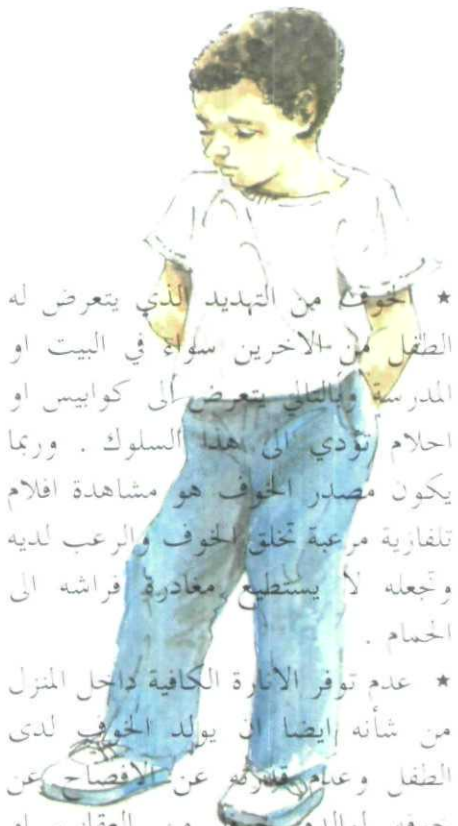 ★ الخوف من التهديد الذي يتعرض له
الطفل من الاخرين سواء في البيت او
المدرسة وبالتالي يتعرض الى كوابيس او
احلام تؤدي الى هذا السلوك . وربما
يكون مصدر الخوف هو مشاهدة افلام
تلفازية مرعبة تخلق الخوف والرعب لديه
وتجعله لا يستطيع مغادرة فراشه الى
الحمام .
★ عدم توفر الانارة الكافية داخل المنزل
من شأنه ايضا ان يولد الخوف لدى
الطفل وعدم قدرته عن الافصاح عن
من العقاب او